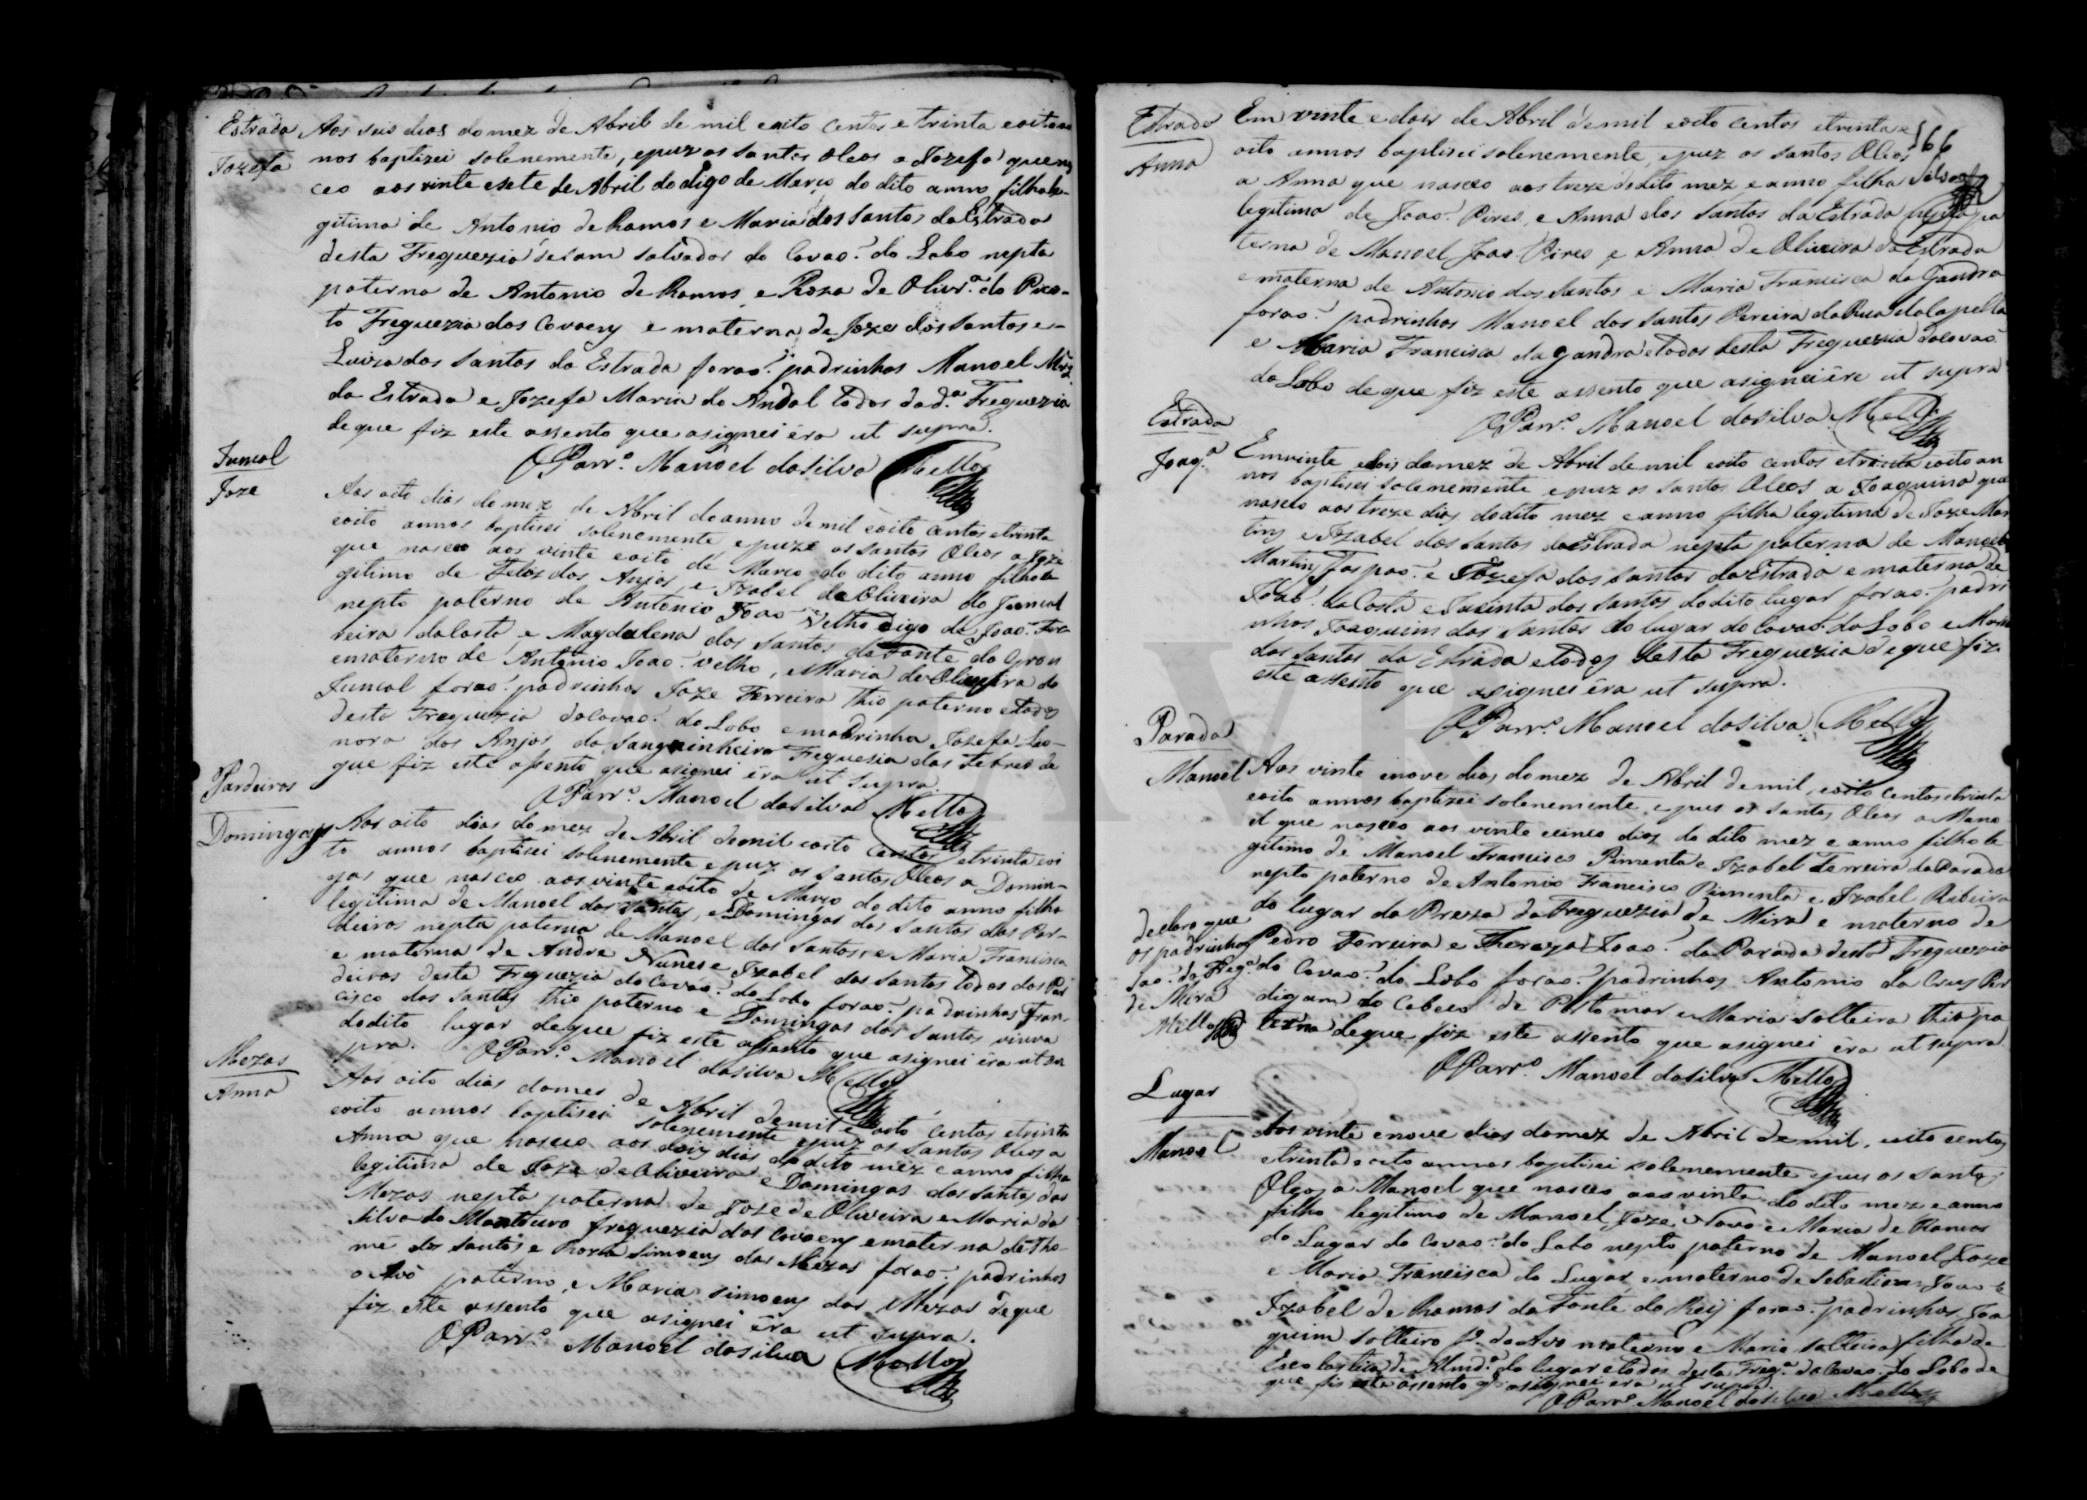 Estrada
Jozefa
Aos seis dias do mez de Abril de mil eoito centos e trinta eoito an
nos baptizei solenemente, epuz os santos oleos a Jozefa que na
ceo aos vinte esete de Abril do digo de Março do dito anno filha le-
gitima de Antonio de Ramos e Maria dos Santos da Estrada
desta Freguezia de sam salvador do Covaõ do Lobo nepta
paterna de Antonio de Ramos, e Roza de Olivr.ª do Pixo-
to Freguezia dos Covoens e materna de Joze dos Santos e-
Luiza dos Santos da Estrada foraõ padrinhos Manoel
da Estrada e Jozefa Maria do Andal todos da d.ª Freguezia
de que fiz este assento que asignei éra ut supra.
O Parr.º Manoel da Silva Mello
Juncal
Joze
Aos oito dias do mez de Abril do anno de mil eoito centos etrinta
eoito annos baptisei solenemente epuze os santos oleos a Joze
que nasceo aos vinte eoito de Março do dito anno filho le
gitimo de Felis dos Anjos, e Izabel de Oliveira do Juncal
nepto paterno de Antonio Joaõ Velho digo de Joaõ Fer
reira da Costa e Magdalena dos Santos da Fonte do Gron
ematerno de Antonio Joaõ Velho, e Maria de Oliveira do
Juncal foraõ padrinhos Joze Ferreira thio paterno etodos
desta Freguezia do Covaõ do Lobo emadrinha Jozefa Leo-
nora dos Anjos da Sanguinheira Freguesia das Febres de
que fiz este assento que asignei éra ut supra.
O Parr.º Manoel da Silva Mello
Pardeiros
Domingas
Aos oito dias do mez de Abril demil eoito centos etrinta eoi
to annos baptisei solenemente epuz os santos oleos a Domin-
gas que nasceo aos vinte eoito de Março do dito anno filha
legitima de Manoel dos Santos, e Domingas dos Santos dos Par-
deiros nepta paterna de Manoel dos Santos, e Maria Francisca
e materna de Andre Nunes e Izabel dos Santos todos dos Par
deiros desta Freguezia do Covaõ do Lobo foraõ padrinhos Fran-
cisco dos Santos thio paterno e Domingas dos Santos, viuva
do dito lugar deque fiz este assento que asignei éra ut su
pra. O Parr.º Manoel da Silva Mello
Mezas
Anna
Aos oito dias do mes de Abril demil e oito centos etrinta
eoito annos baptisei solenemente epuz os Santos Oleos a
Anna que nasceo aos dois dias do dito mez e anno filha
legitima de Joze de Oliveira e Domingas dos Santos das
Mezas nepta paterna de Joze de Oliveira e Maria da
Silva do Montouro freguezia dos Covoens ematerna de Tho-
mé dos Santos e Roza Simoens das Mezas foraõ padrinhos
o Avô paterno, e Maria Simoens das Mezas de que
fiz este assento que asignei éra ut supra.
O Parr.º Manoel da Silva Mello
166
Silva
Estrada
Anna
Em vinte edois de Abril de mil eoito centos etrinta e
oito annos baptisei solenemente, epuz os santos Oleos
a Anna que nasceo aos treze dodito mez e anno filha
legitima de Joaõ Pires, e Anna dos Santos da Estrada nepta pa
terna de Manoel Joaõ Pires, e Anna de Oliveira da Estrada
e materna de Antonio dos Santos e Maria Francisca da Gandra
foraõ padrinhos Manoel dos Santos Pereira da Rua da Capella
e Maria Francisca da Gandra etodos desta Freguezia do Covaõ
do Lobo de que fiz este assento que asignei éra ut supra
O Parr.º Manoel da Silva Mello
Estrada
Joaq.ª
Emvinte edois do mez de Abril de mil eoito centos etrinta eoito an
nos baptisei solenemente epuz os santos Oleos a Joaquina que
nasceo aos treze dias dodito mez eanno filha legitima de Joze Mar
tins e Izabel dos Santos da Estrada nepta paterna de Manoel
Martins Faspaõ e Jozefa dos Santos da Estrada e materna de
Joaõ da Costa e Jacinta dos Santos dodito lugar foraõ padri
nhos Joaquim dos Santos do lugar do Covaõ do Lobo e
dos Santos da Estrada etodos desta Freguezia de que fiz
este assento que asignei éra ut supra.
O Parr.º Manoel da Silva Mello
Parada
Manoel
Aos vinte enove dias do mez de Abril demil, eoito centos etrinta
eoito annos baptizei solenemente, epus os santos Oleos a Mano
el que nasceo aos vinte ecinco dias do dito mez e anno filho le
gitimo de Manoel Francisco Pimenta e Izabel Ferreira da Parada
nepto paterno de Antonio Francisco Pimenta e Izabel Ribeira
do lugar da Preza da Freguezia de Mira e materno de
Pedro Ferreira e Thereza Joaõ da Parada desta Freguezia
do Covaõ do Lobo foraõ padrinhos Antonio da Crus Per
digam do Cabeco de Portomar e Maria solteira thia pa
terna deque fiz este assento que asignei éra ut supra.
O Parr.º Manoel da Silva Mello
declaro que
os padrinhos
saõ da Freg.ª
de Mira
Mello
Lugar
Manoel
Aos vinte enove dias domez de Abril demil, eoito centos
etrinta e oito annos baptisei solenemente epus os santos
Oleos a Manoel que nasceo aos vinte do dito mez eanno
filho legitimo de Manoel Joze Novo e Maria de Ramos
do Lugar do Covaõ do Lobo nepto paterno de Manoel Joze
e Maria Francisca do Lugar, ematerno de Sebastiam Joaõ e
Izabel de Ramos da Fonte do Reÿ foraõ padrinhos Joa
quim solteiro f.º do Avo materno e Maria solteira filha de
Escolastica de Almd.ª do lugar etodos desta Freg.ª do Covaõ do Lobo de
que fis este assento q asignei éra ut supra.
O Parr.º Manoel da Silva Mello